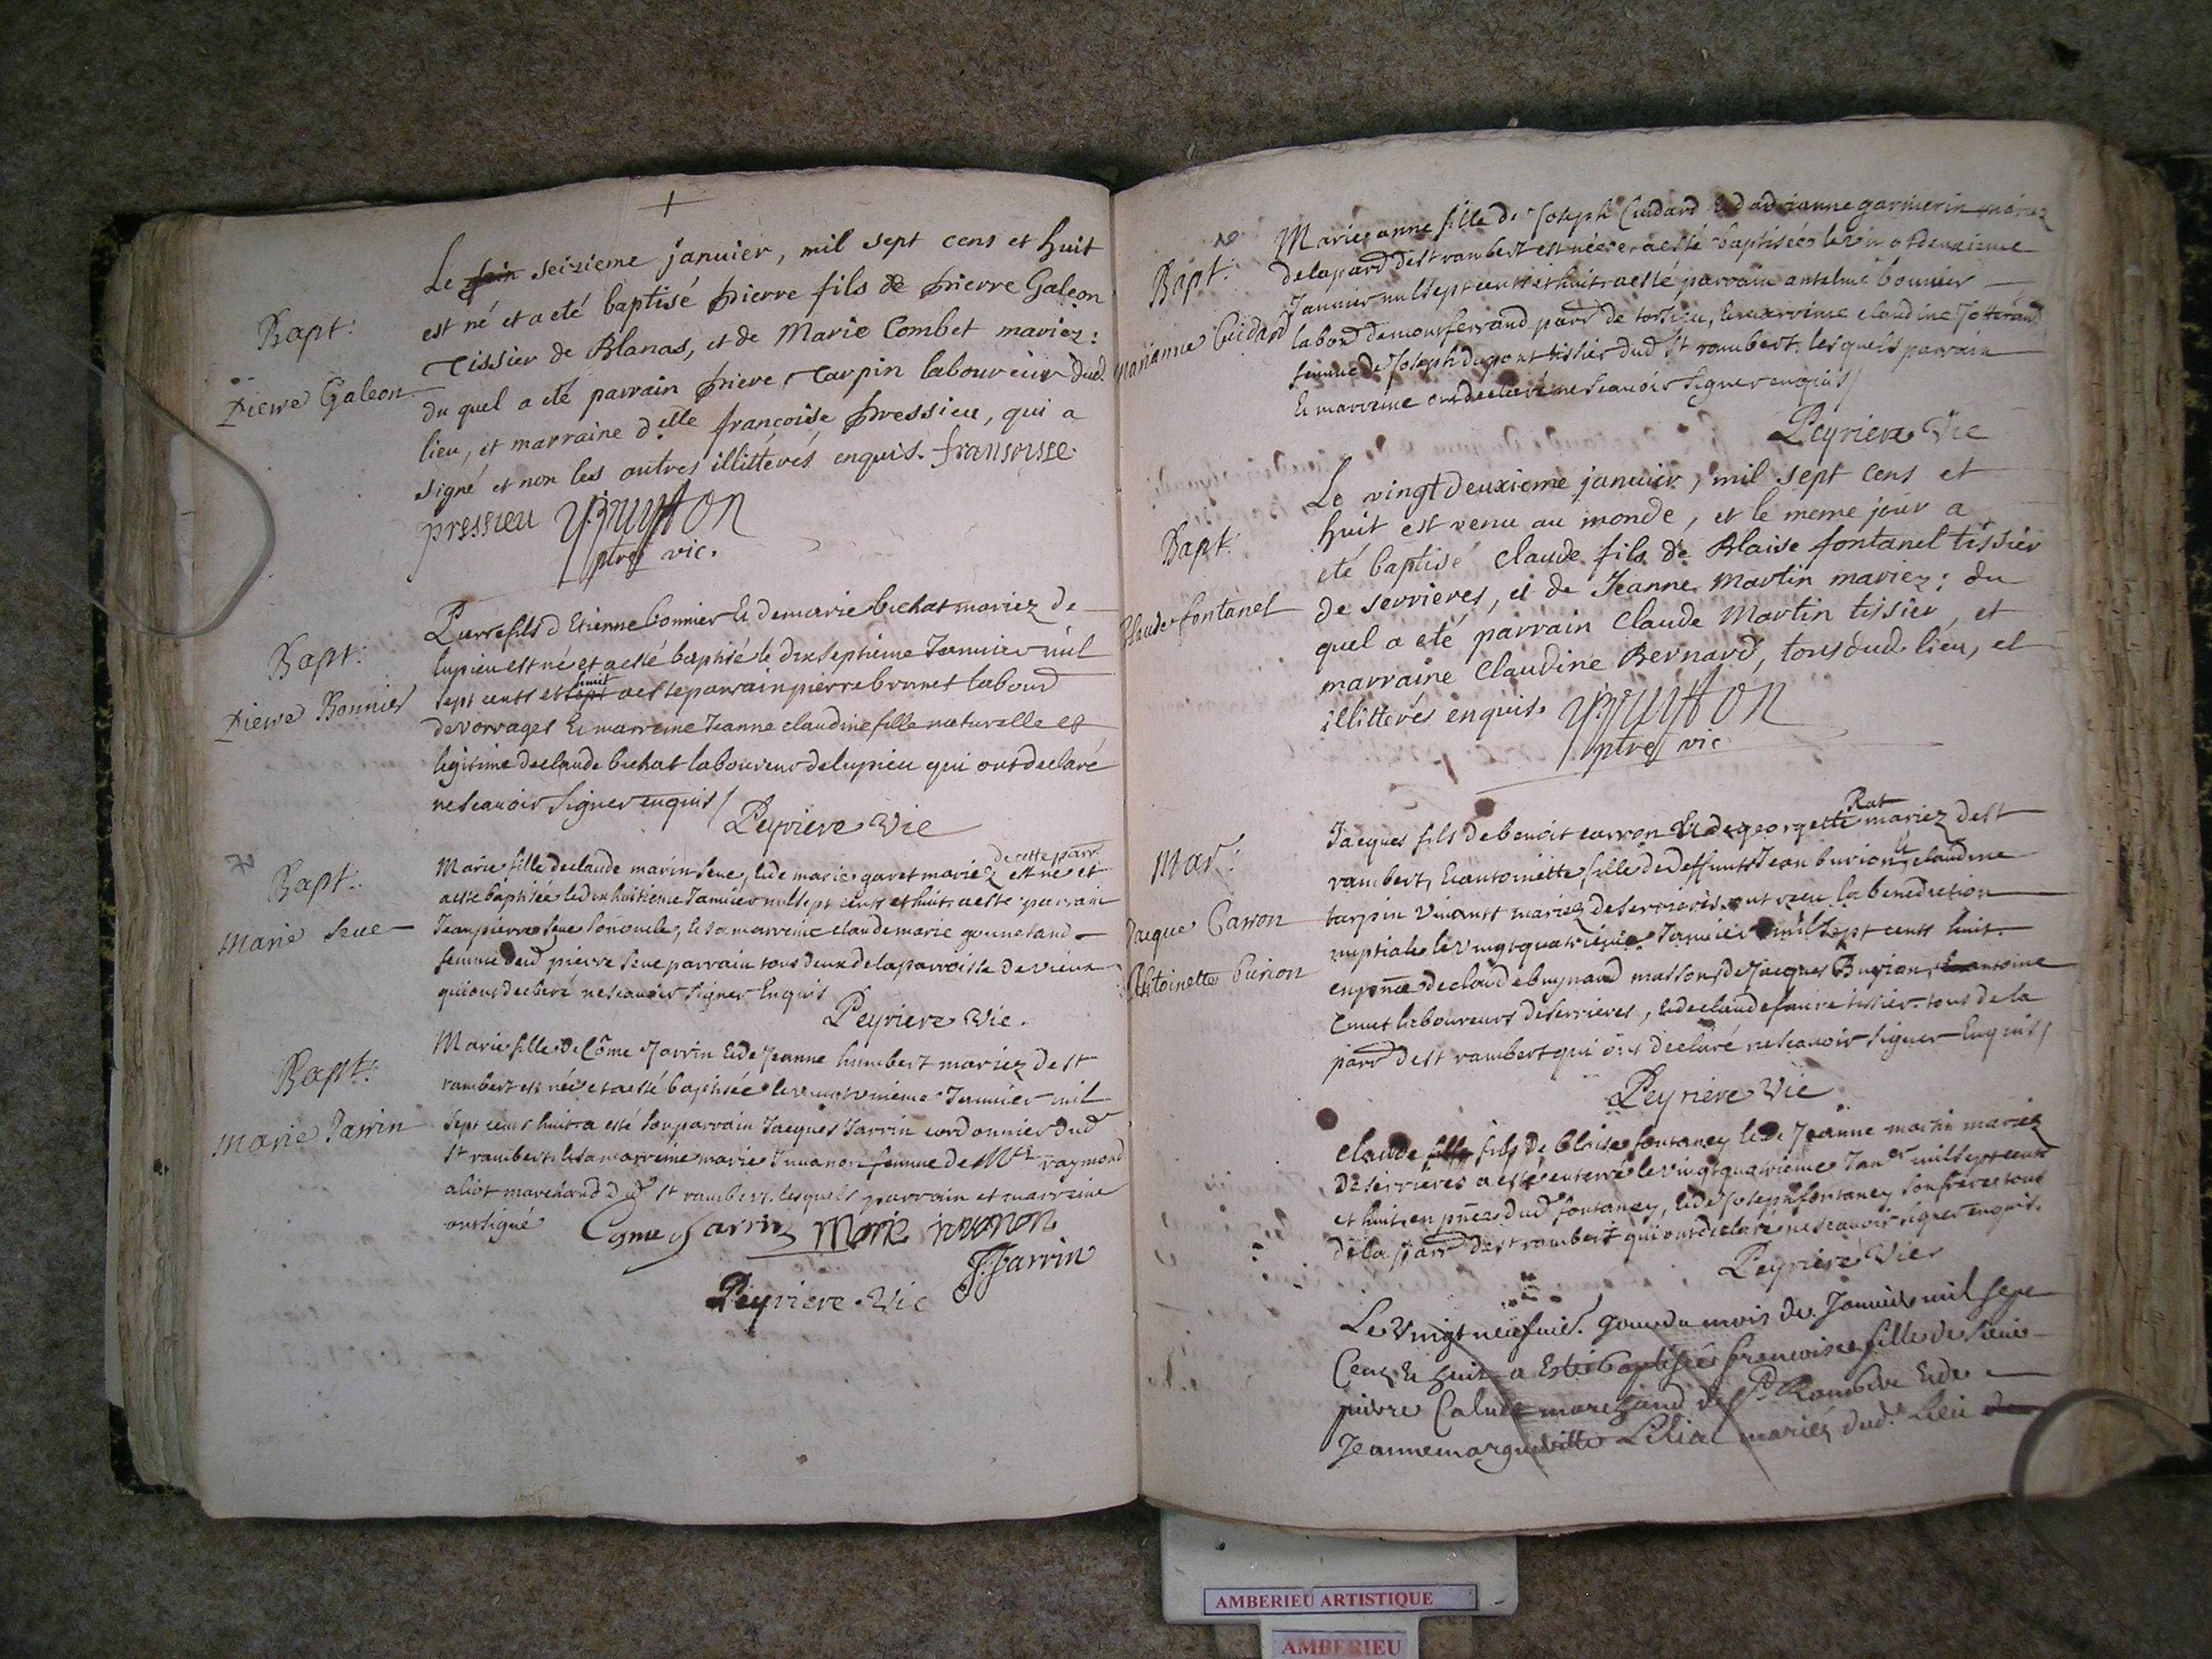 Bapt:
Pierre Galeon
Le seizieme janvier, mil sept cens et huit
est né et a eté baptisé pierre fils de pierre Galeon
Tissier de Blanas, et de Marie Combet mariez:
du quel a eté parrain piere Tarpin laboureur dud.
lieu, et marraine d.elle françoise pressieu, qui a
signé et non les autres illitterés enquis. fransoise
pressieu
ptre vic.
Bapt:
Pierre Bonnier
Pierre fils d Etienne bonnier & de marie bichat mariez de
lupieu est né et a esté baptisé le dix septieme Janvier mil
sept cents et huit a este parrain pierre brunet labourd
de vorages & marreine Jeanne claudine fille naturelle et
legitime de claude bichat laboureur de lupieu qui ont declaré
ne scavoir signer enquis /
Peyriere Vic
Bapt:
Marie Seve
de cette parr.
Marie fille de claude marin seve, & de marie garet mariez est né et
a este baptisée le dix huitieme Janvier mil sept cents et huit a este parrain
Jean pierre seve son oncle, & sa marreine claude marie
femme dud pierre seve parrain tous deux de la parroisse de vieux
qui ont declaré ne scavoir signer Enquis
Peyriere Vic.
Bapt:
Marie Jarrin
Marie fille de Côme Jarrin & de Jeanne humbert mariez de st
rambert est née et a esté baptisée le Janvier mil
sept cents huit a esté son parrain Jacques Jarrin cordonnier dud
st rambert & sa marreine marie femme de Mre raymond
aliot marchand dud st rambert, lesquels parrain et marreine
ont signé Come Jarrin Marie
J. Jarrin
Peyriere Vic
Bapt:
Marianne Guidard
Marie anne fille de Joseph Guidard & d adrianne garnierin mariez
de la parr de st rambert est née et a esté baptisée le vingt deuxieme
Janvier mil sept cents et huit a esté parrain antelme bonnier
labord de monferrand parr de torcieu, & marreine claudine
femme de Joseph dupont tissier dud st rambert, lesquels parrain
& marreine ont declaré ne scavoir signer enquis /
Peyriere Vic
Bapt:
Claude fontanel
Le vingt deuxieme janvier, mil sept cens et
huit est venu au monde, et le meme jour a
eté baptisé claude fils de Blaise fontanel tissier
de serrieres, et de Jeanne Martin mariez: du
quel a eté parrain Claude Martin tissier, et
marraine Claudine Bernard, tous dud. lieu, et
illitterés enquis.
ptre vic
Mar:
Jacque Carron
Antoinette burion
Rat
Jacques fils de benoit carron & de georgette mariez de st
rambert, & antoinette fille de deffunts Jean burion & claudine
tarpin vivants mariez de serrieres ont receu la benediction
nuptiale le vingt quatrieme Janvier mil sept cents huit
en pnce de claude masson, de Jacques Burion,
laboureurs de serrieres, & de claude faure tissier tous de la
parr de st rambert qui ont declaré ne scavoir signer Enquis /
Peyriere Vic
Claude fils de blaise fontaney & de Jeanne martin mariez
de serrieres a esté enterré le vingt quatrieme Janer mil sept cents
et huit en pnce dud fontaney, & de Joseph fontaney son frere tous
de la parr de st rambert qui ont declaré ne scavoir signer enquis.
Peyriere Vic
Le vingt neufvie. jour du mois de Janvier mil sept
Cent & huit a Esté Baptisée francoise fille de sieur
pierre marchand de St Rambert & de
Jeanne margueritte mariés dud. Lieu
AMBERIEU ARTISTIQUE
AMBERIEU